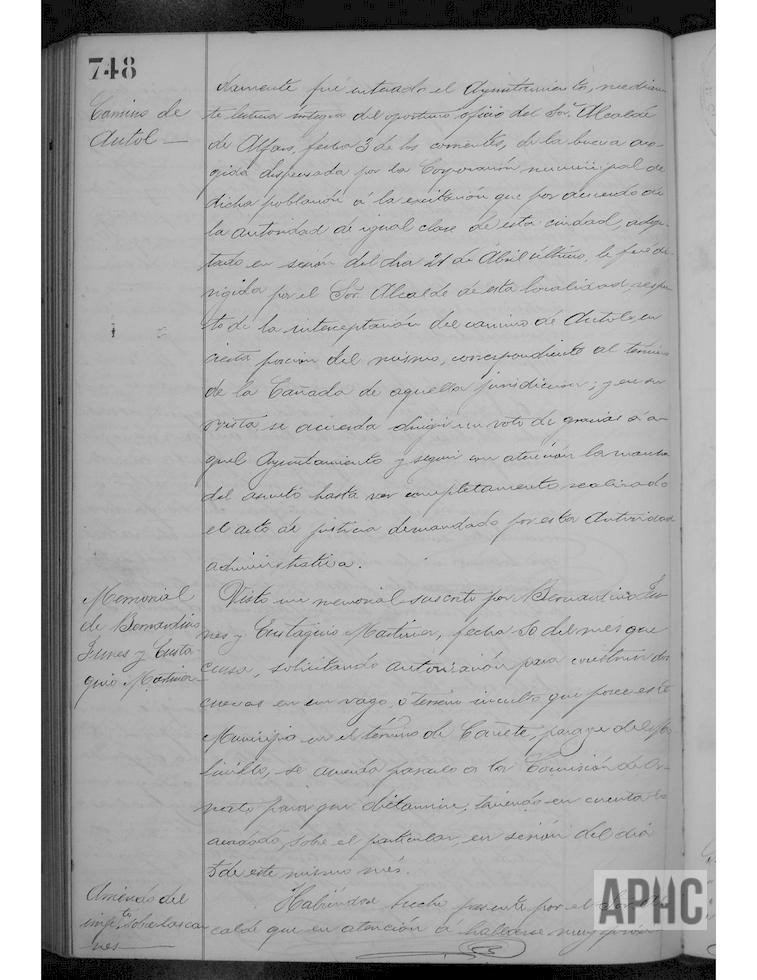 748
Camino de
Autol —
damente fué enterado el Ayuntamiento, median
te lectura íntegra del oportuno oficio del Sor. Alcalde
de Alfaro, fecha 3 de los corrientes, de la buena aco
gida dispensada por la Corporación municipal de
dicha población á la excitación que por acuerdo de
la autoridad de igual clase de esta ciudad, adop
tado en sesión del dia 21 de Abril último, le fué di
rigida por el Sor. Alcalde de esta localidad, respec
to de la interceptación del camino de Autol, en
cierta porción del mismo, correspondiente al término
de la Cañada de aquella jurisdicción; y en su
vista, se acuerda dirigir un voto de gracias á a
quel Ayuntamiento y seguir con atención la marcha
del asunto hasta ver completamente realizado
el acto de justicia demandado por esta Autoridad
administrativa.
Memorial
de Bernardino
Funes y Eusta
quio Martinez
Visto un memorial suscrito por Bernardino Fu
nes y Eustaquio Martinez, fecha 30 del mes que
cursa, solicitando autorización para construir dos
cuevas en un vago ó terreno inculto que posee este
Municipio en el término de Cañete, parage del
se acuerda pasarlo á la Comisión de
para que dictamine, teniendo en cuenta lo
acordado, sobre el particular, en sesión del dia
5 de este mismo mes.
del
impto sobre las car
nes —
Habiéndose hecho presente por el Sor. Al
calde que en atención á hallarse muy
APHC